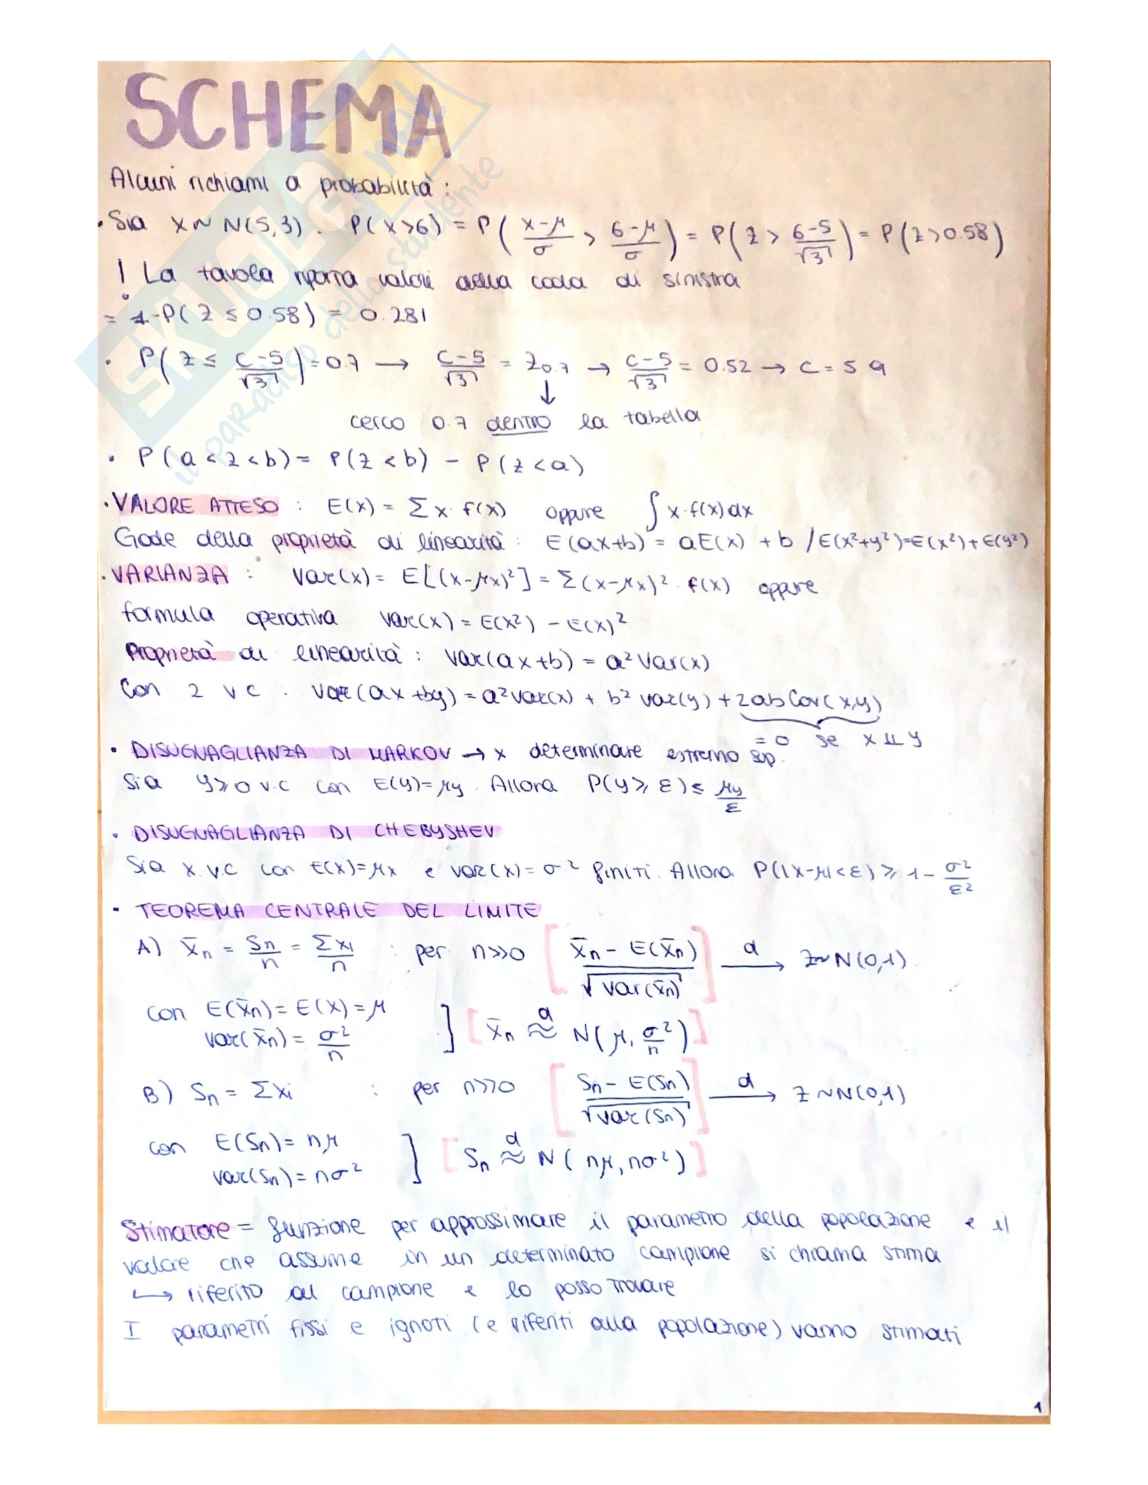 SCHEMA
Alcuni richiami a probabilità:
• Sia X ~ N(5,3). P(X>6) = P( (X-μ)/σ > (6-μ)/σ ) = P( Z > (6-5)/√3 ) = P( Z > 0.58 )
! La tavola riporta valori della coda di sinistra
= 1-P( Z ≤ 0.58 ) = 0.281
• P( Z ≤ (C-5)/√3 ) = 0.7 → (C-5)/√3 = Z0.7 → (C-5)/√3 = 0.52 → C = 5.9
↓
cerco 0.7 dentro la tabella
• P( a < Z < b ) = P( Z < b ) - P( Z < a )
• VALORE ATTESO : E(X) = Σ x · f(x) oppure ∫ x·f(x)dx
Gode della proprietà di linearità : E(ax+b) = aE(x) + b / E(x²+y²)=E(x²)+E(y²)
• VARIANZA : Var(x) = E[(x-μx)²] = Σ(x-μx)² · f(x) oppure
formula operativa var(x) = E(x²) - E(x)²
Proprietà di linearità : var(ax+b) = a² Var(x)
Con 2 v.c. var(ax+by) = a² var(x) + b² var(y) + 2ab Cov(x,y)
= 0 se x ⫫ y
• DISUGUAGLIANZA DI MARKOV → x determinare estremo sup.
Sia y ≥ 0 v.c con E(y)=μy. Allora P(y ≥ ε) ≤ μy/ε
• DISUGUAGLIANZA DI CHEBYSHEV
Sia x v.c con E(x)=μx e var(x)=σ² finiti. Allora P(|x-μ|<ε) ≥ 1 - σ²/ε²
• TEOREMA CENTRALE DEL LIMITE
A) X̄n = Sn/n = Σxi/n : per n>>0 [ (X̄n - E(X̄n)) / √var(X̄n) ] →d Z~N(0,1)
con E(X̄n) = E(X) = μ
var(X̄n) = σ²/n ] [ X̄n ≈d N( μ, σ²/n ) ]
B) Sn = Σxi : per n>>0 [ (Sn - E(Sn)) / √var(Sn) ] →d Z ~N(0,1)
con E(Sn) = nμ
var(Sn) = nσ² ] [ Sn ≈d N( nμ, nσ² ) ]
Stimatore = funzione per approssimare il parametro della popolazione e il
valore che assume in un determinato campione si chiama stima
↳ riferito al campione e lo posso trovare
I parametri fissi e ignoti (e riferiti alla popolazione) vanno stimati
1
SKUOLA.net
il paradiso dello studente